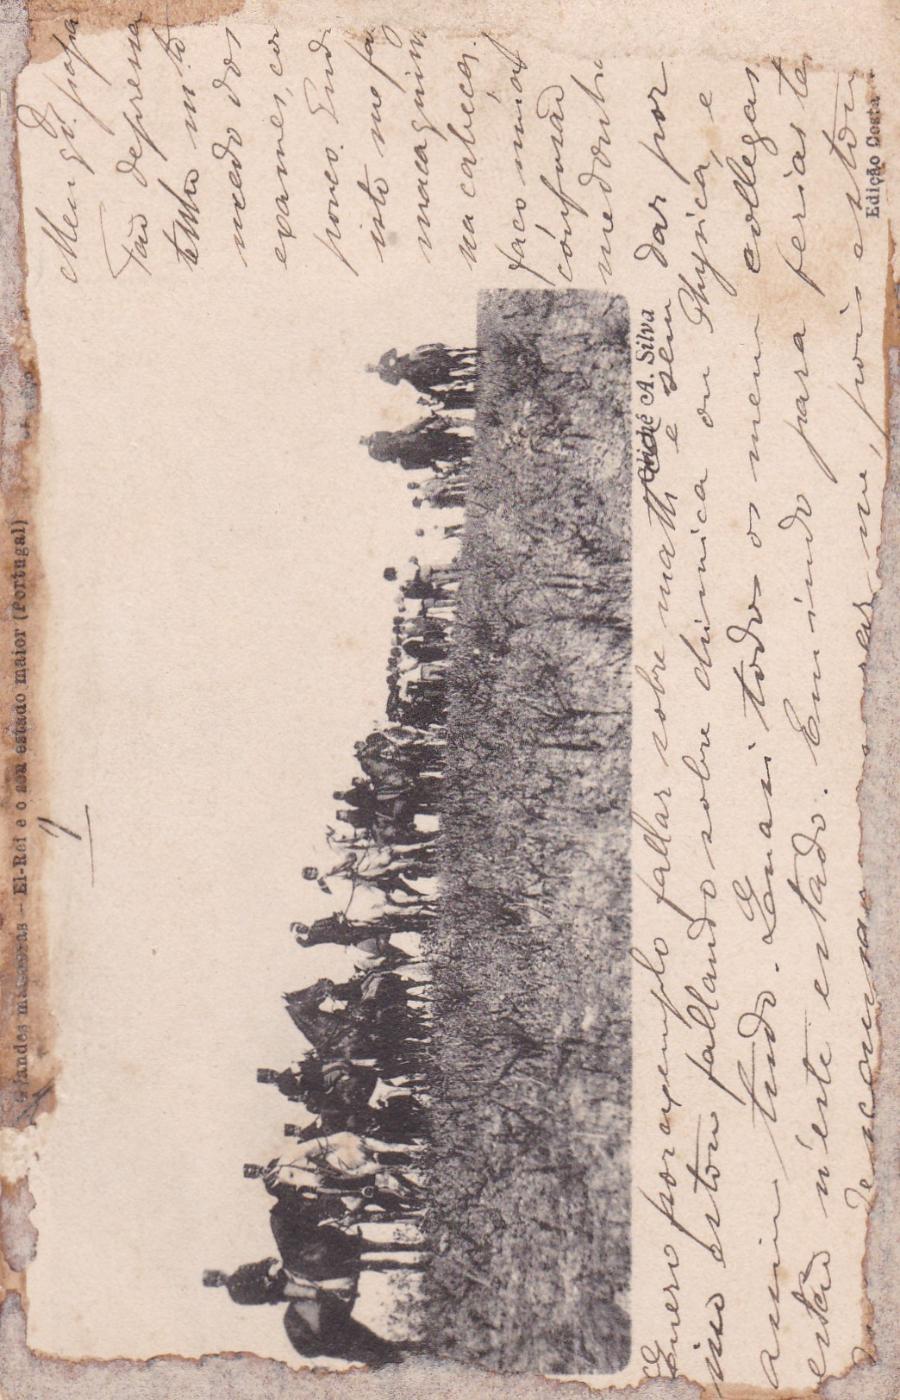 Grandes manobras — El-Rei e o seu estado maior (Portugal)
1
Meu q. papa
Tão depressa
tenho m. to
medo dos
exames, co
pouco.
isto me fa
macaquin
na cabeça.
faço
confusão
medonha
Cliché A. Silva
Quero por exemplo fallar sobre math e sem dar por
isso estou fallando sobre chimica ou Physica, e
assim tudo. E mais todos os meus collegas
estão n'este estado. Em indo para ferias te
descansar me, pois estou
Edição Costa